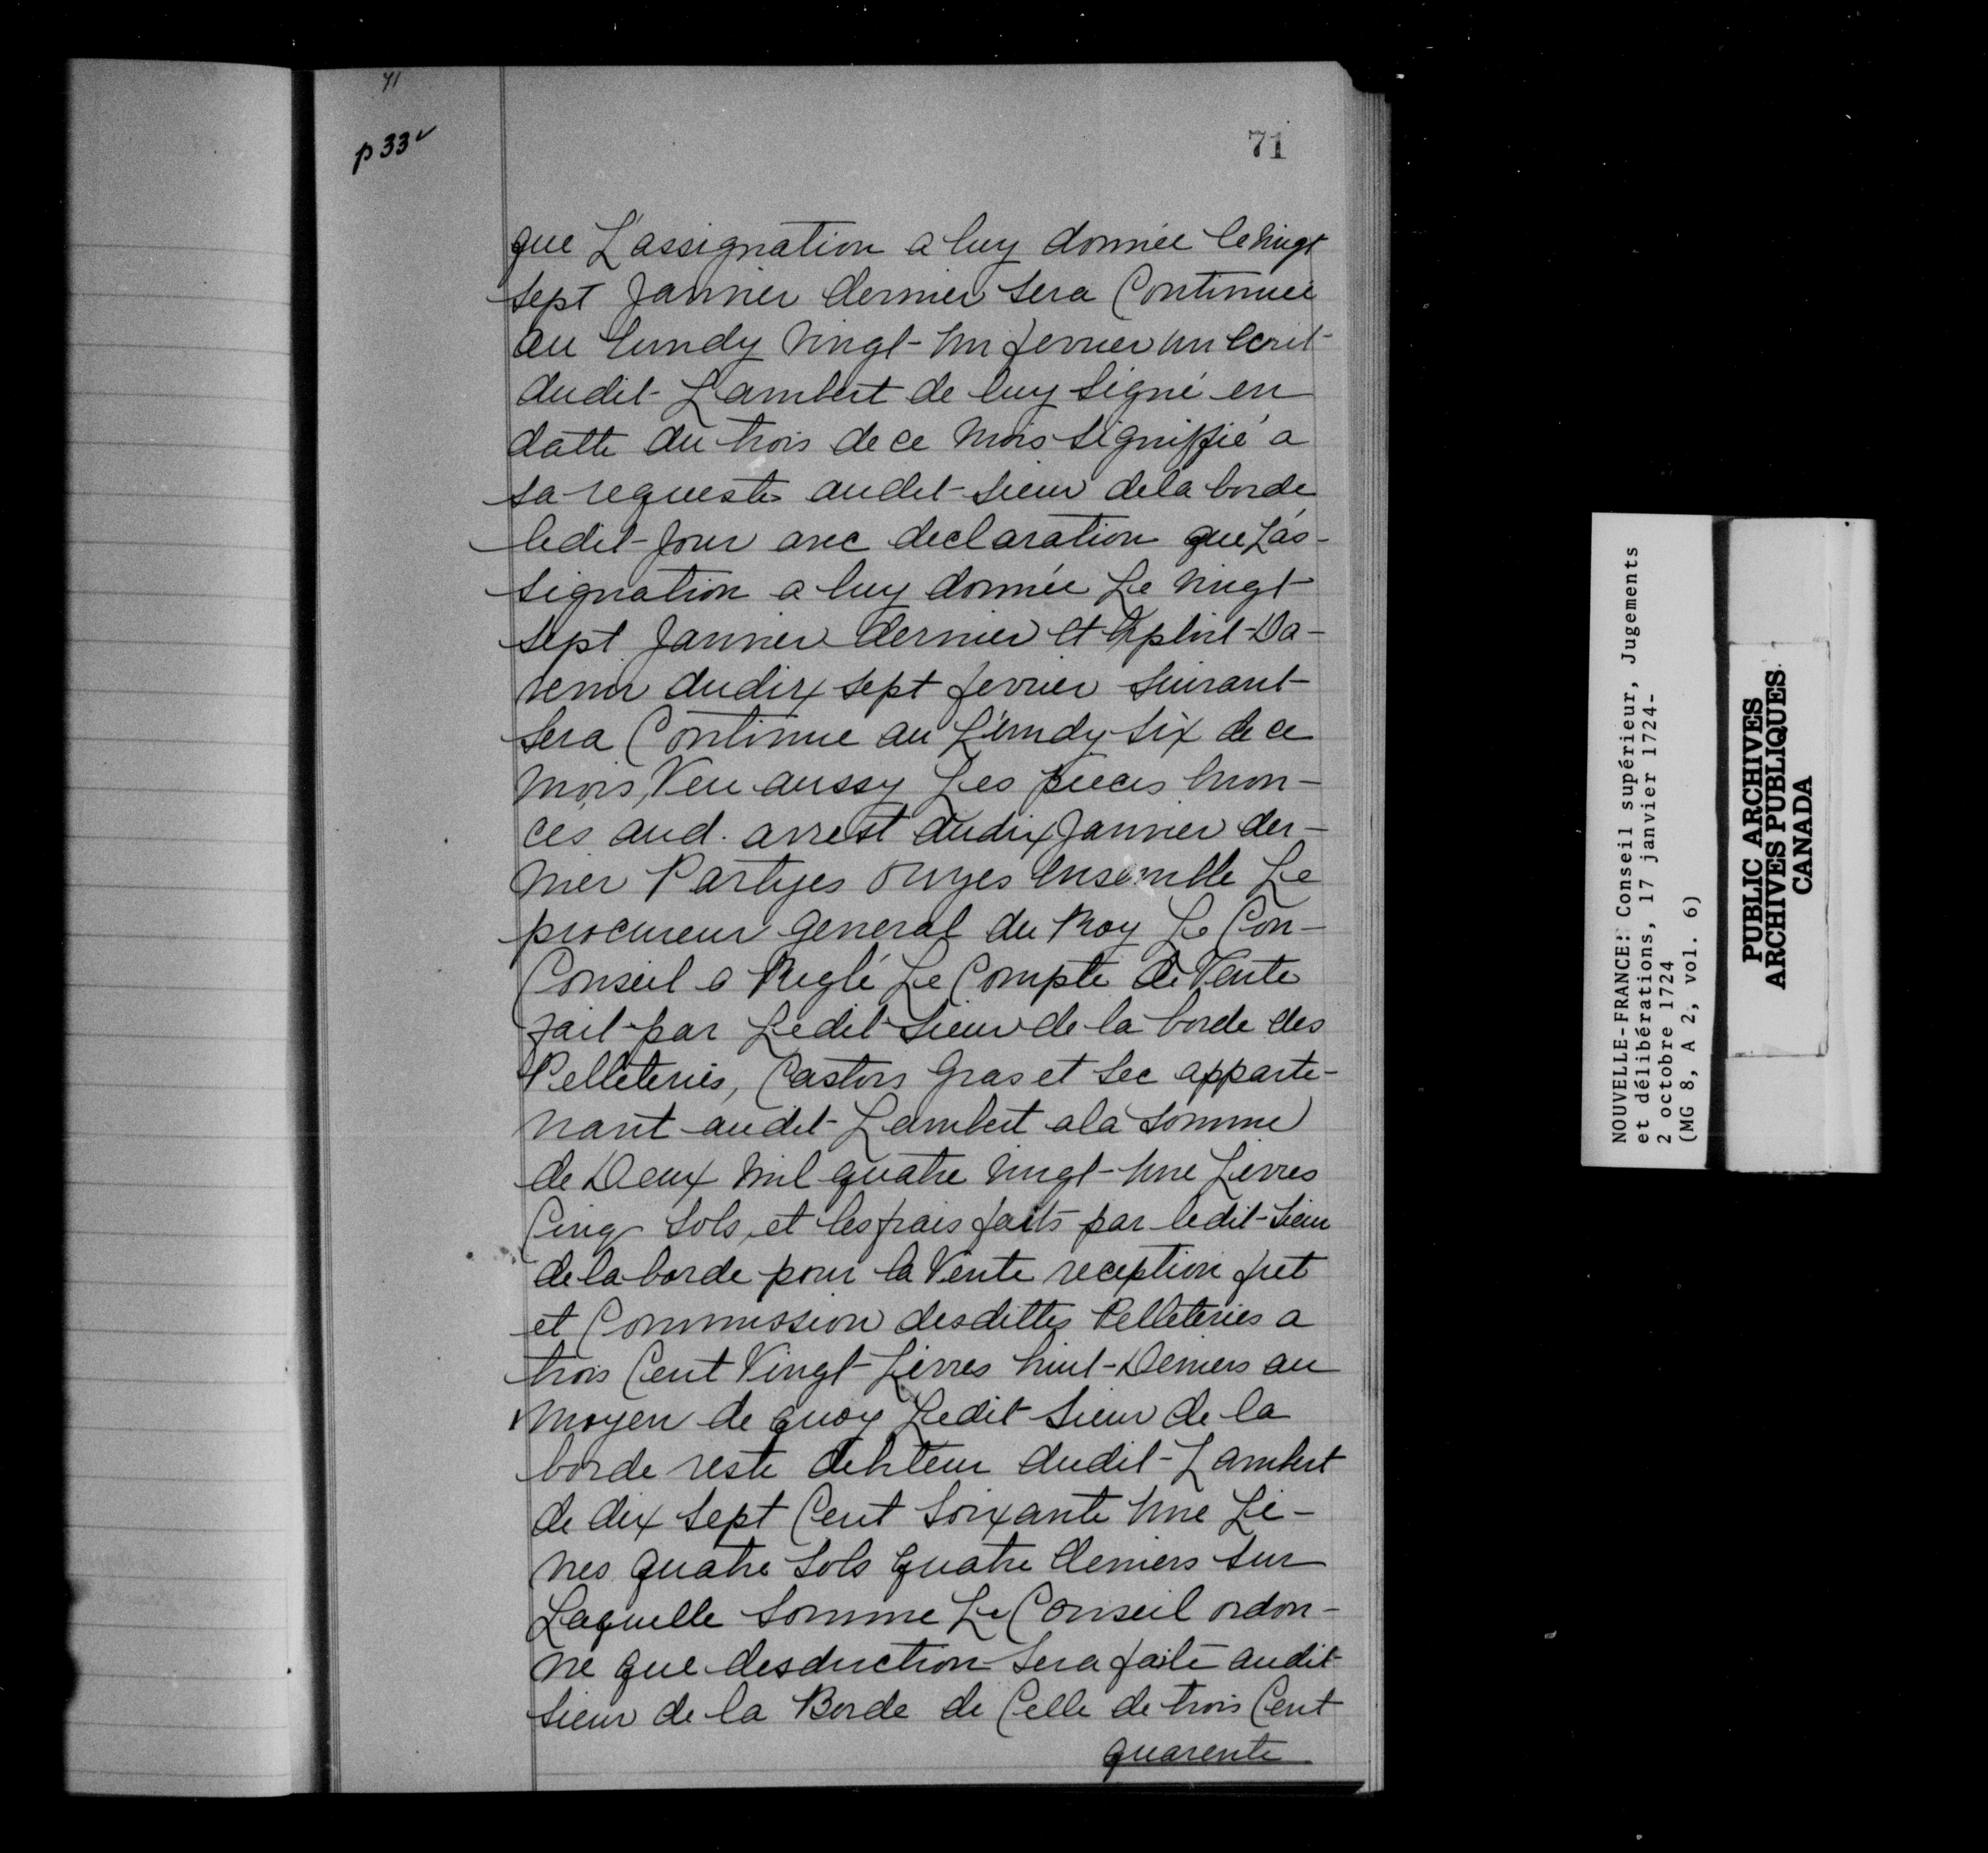 71
p 33 v
71
que L'assignation a luy donnée le vingt
sept Janvier dernier sera Continuée
au Lundy vingt-un fevrier un Ecrit
dudit Lambert de luy signé en
datte du trois de ce mois signiffié a
sa requeste audit sieur dela borde
ledit Jour avec declaration que L'as-
signation a luy donnée Le vingt
sept Janvier dernier et Exploit Da-
venir dudix sept fevrier suivant
sera Continue au Lundy six de ce
mois, Veu aussy Les pieces Enon-
cés aud. arrest dudix Janvier der-
nier Partyes ouyes Ensemble Le
procureur general du Roy Le Con-
Conseil a Reglé Le Compte de Vente
fait par Ledit sieur de la borde des
Pelleteries, Castors gras et sec apparte-
nant audit Lambert ala somme
de Deux mil quatre vingt-une Livres
Cinq sols, et les frais faits par ledit sieur
de la borde pour la Vente reception fret
et Commission desdittes Pelleteries a
trois Cent Vingt Livres huit Deniers au
moyen de quoy Ledit sieur de la
borde reste debiteur dudit Lambert
de dix sept Cent soixante une Li-
vres quatre sols quatre deniers sur
Laquelle somme Le Conseil ordon-
ne que desduction sera faite audit
sieur de la Borde de Celle de trois Cent
quarente
NOUVELLE-FRANCE: Conseil supérieur, Jugements
et délibérations, 17 janvier 1724-
2 octobre 1724
(MG 8, A 2, vol. 6)
PUBLIC ARCHIVES
ARCHIVES PUBLIQUES
CANADA